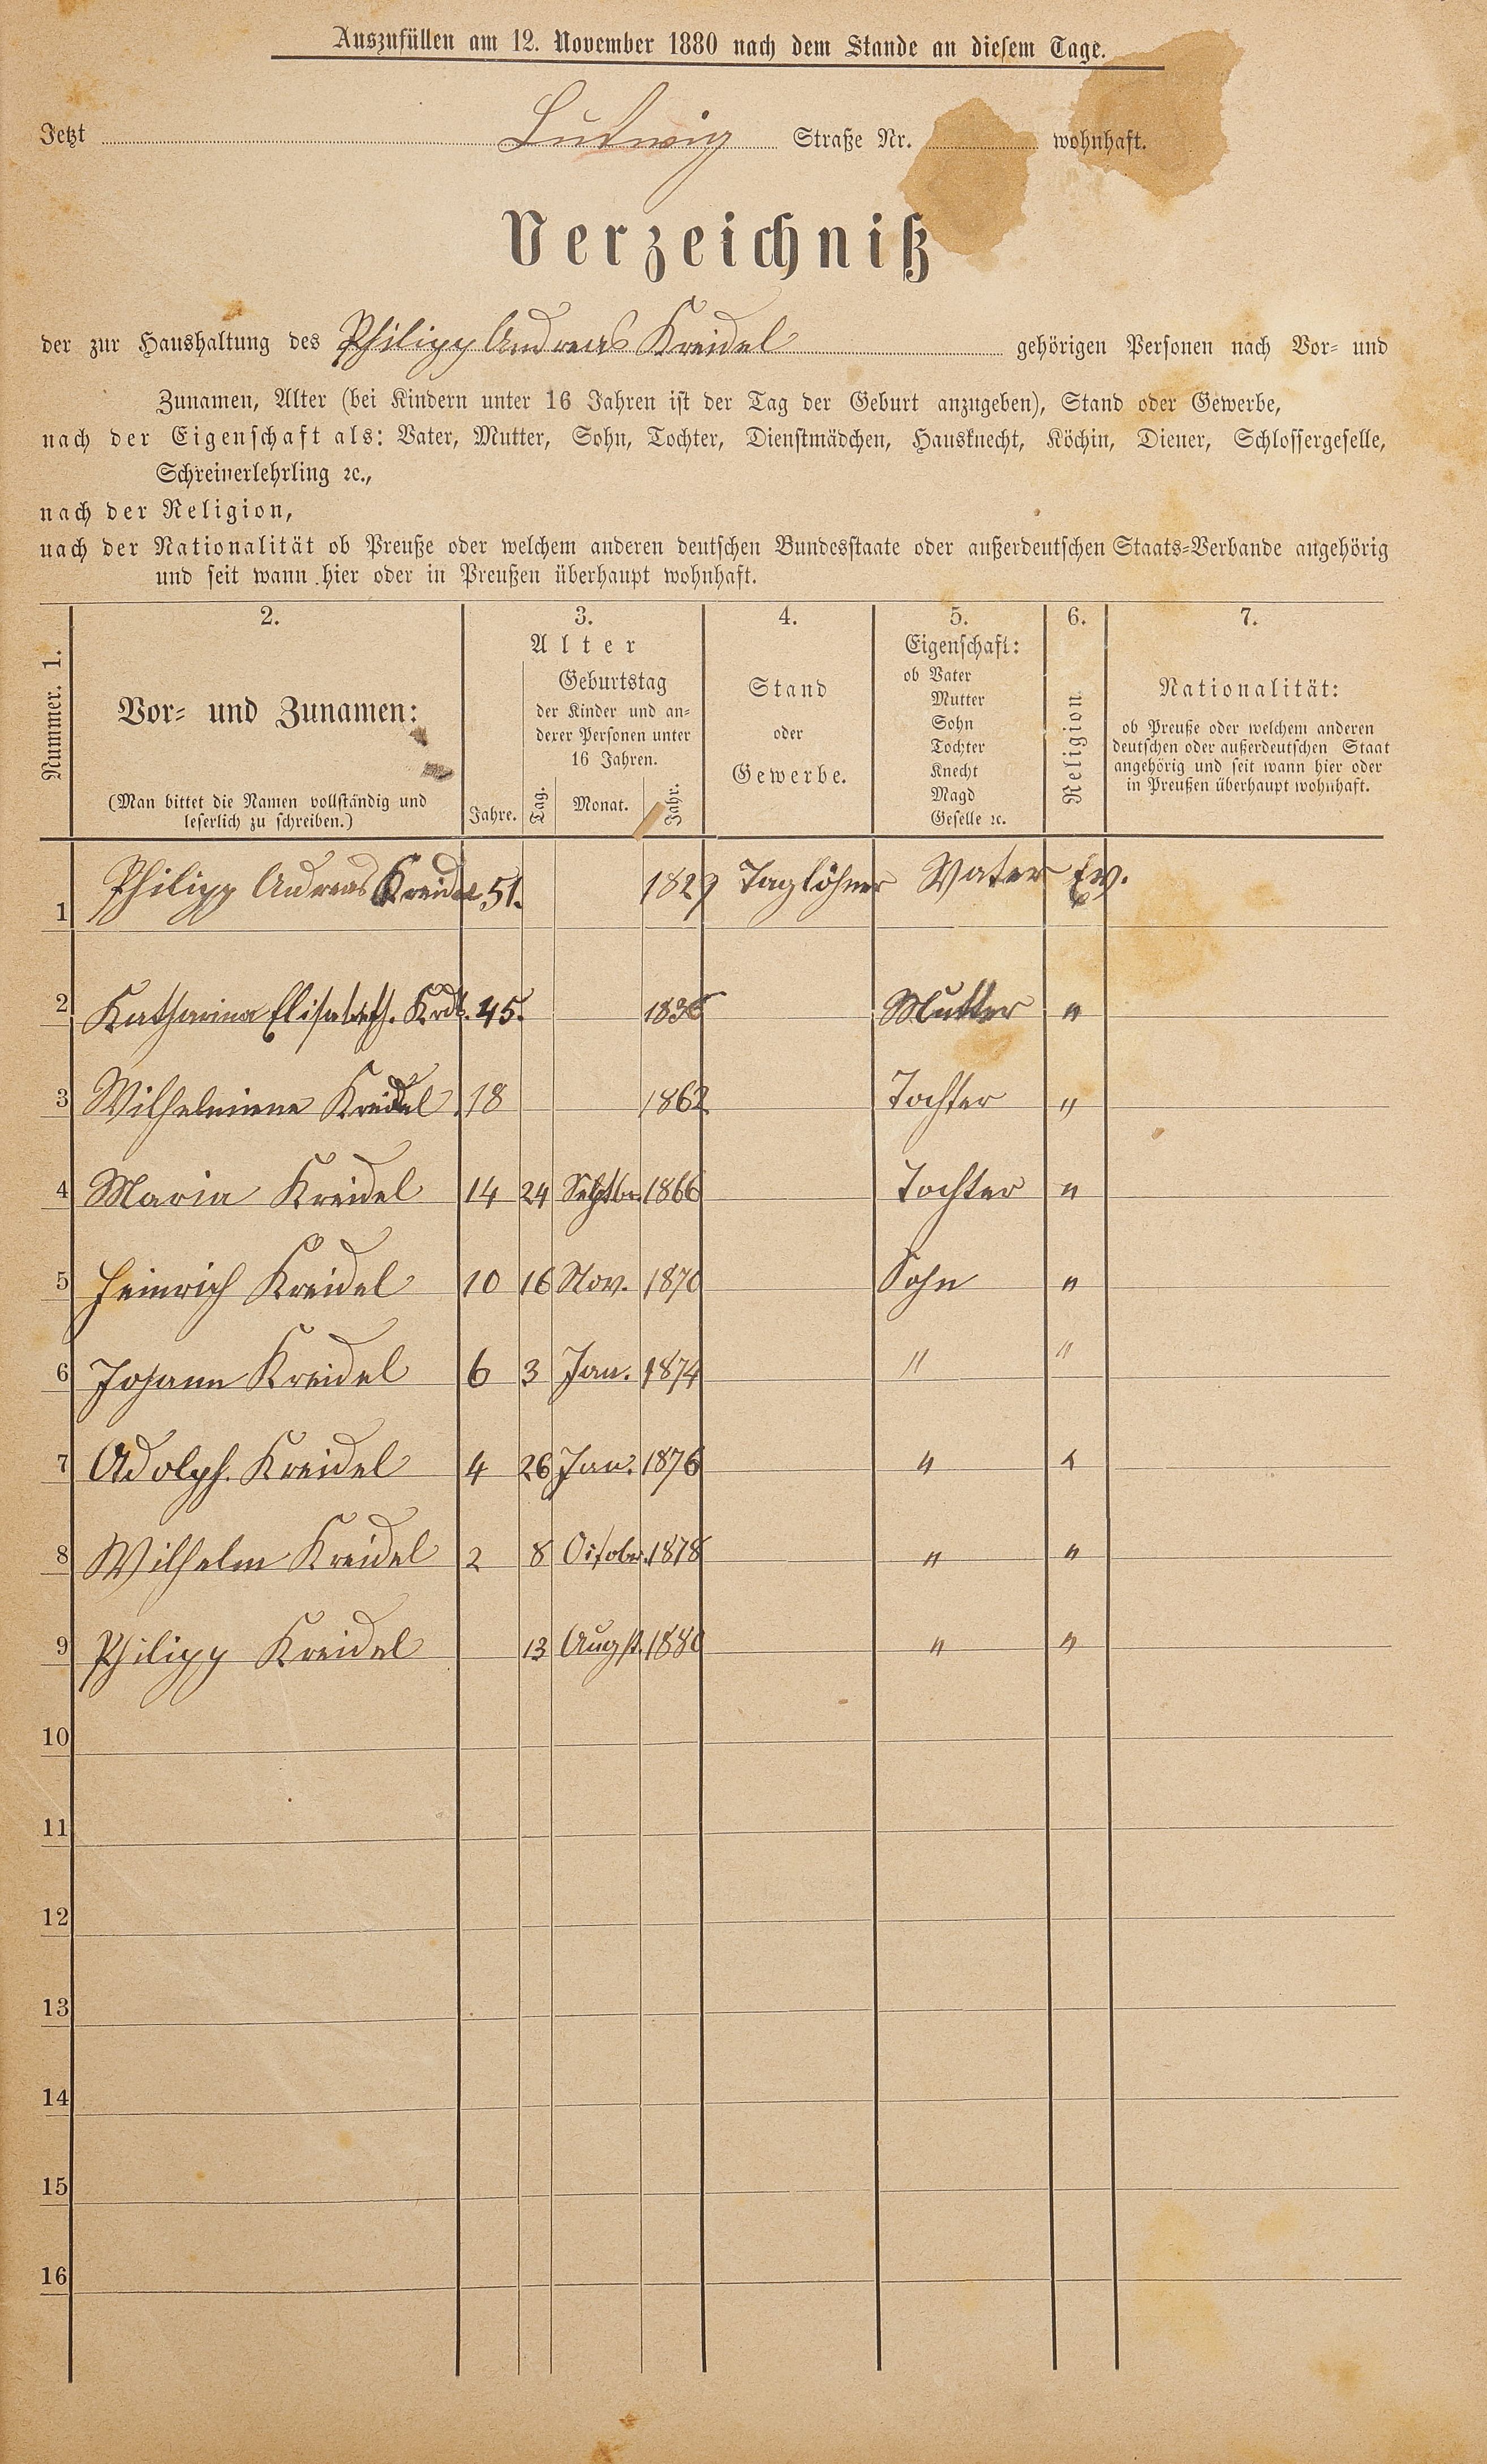 Auszufüllen am 12. November 1880 nach dem Stande an diesem Tage.
Jetzt Ludwig Straße Nr. wohnhaft.
Verzeichniß
der zur Haushaltung des Philipp Andreas Kreidel gehörigen Personen nach Vor- und
Zunamen, Alter (bei Kindern unter 16 Jahren ist der Tag der Geburt anzugeben), Stand oder Gewerbe,
nach der Eigenschaft als: Vater, Mutter, Sohn, Tochter, Dienstmädchen, Hausknecht, Köchin, Diener, Schlossergeselle,
Schreinerlehrling ꝛc.,
nach der Religion,
nach der Nationalität ob Preuße oder welchem anderen deutschen Bundesstaate oder außerdeutschen Staats-Verbande angehörig
und seit wann hier oder in Preußen überhaupt wohnhaft.
Nummer. 1.
2.
Vor- und Zunamen:
(Man bittet die Namen vollständig und
leserlich zu schreiben.)
3.
Alter
Jahre.
Geburtstag
der Kinder und an-
derer Personen unter
16 Jahren.
Tag. Monat. Jahr.
4.
Stand
oder
Gewerbe.
5.
Eigenschaft:
ob Vater
Mutter
Sohn
Tochter
Knecht
Magd
Geselle ꝛc.
6.
Religion
7.
Nationalität:
ob Preuße oder welchem anderen
deutschen oder außerdeutschen Staat
angehörig und seit wann hier oder
in Preußen überhaupt wohnhaft.
1 Philipp Andreas Kreidel 51. 1829 Taglöhner Vater Ev.
2 Katharina Elisabeth. Krdl. 45. 1835 Mutter "
3 Wilhelmine Kreidel 18 1862 Tochter "
4 Maria Kreidel 14 24 Septbr. 1866 Tochter "
5 Heinrich Kreidel 10 16 Nov. 1870 Sohn "
6 Johann Kreidel 6 3 Jan. 1874 " "
7 Adolph. Kreidel 4 26 Jan. 1876 " "
8 Wilhelm Kreidel 2 8 October. 1878 " "
9 Philipp Kreidel 13 Augst. 1880 " "
10
11
12
13
14
15
16